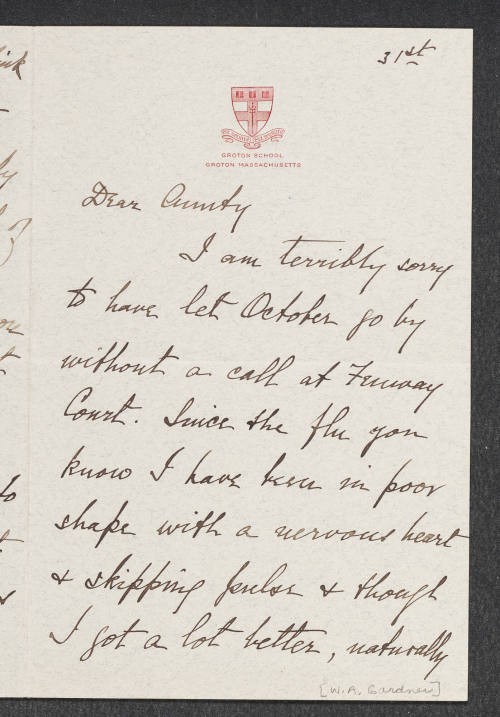 31st
GROTON SCHOOL
GROTON MASSACHUSETTS
Dear Aunty
I am terribly sorry
to have let October go by
without a call at Fenway
Court. Since the flu you
know I have been in poor
shape with a nervous heart
& skipping pulse & though
I got a lot better, naturally
[W.A. Gardner]